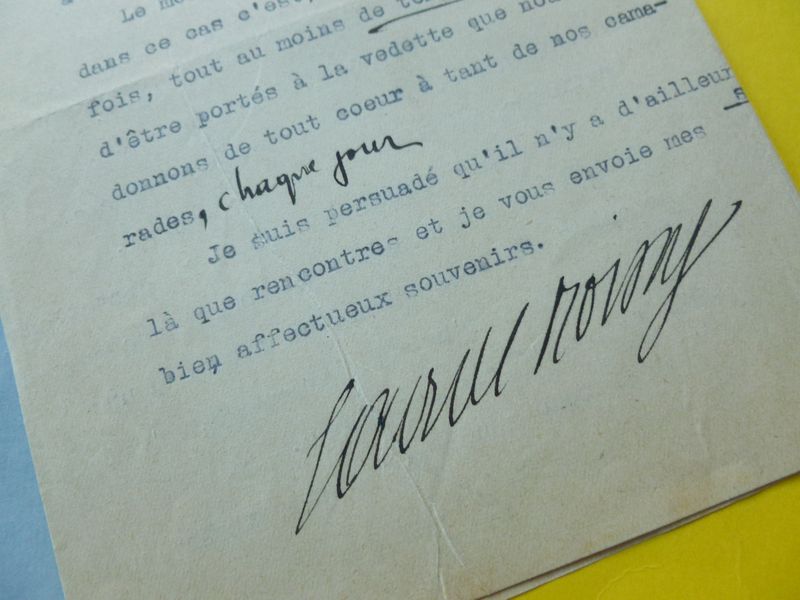 Le
dans ce cas c'est,
fois, tout au moins de
d'être portés à la vedette que
donnons de tout coeur à tant de nos cama-
rades, chaque jour
Je suis persuadé qu'il n'y a d'ailleurs
là que rencontres et je vous envoie mes
bien affectueux souvenirs.